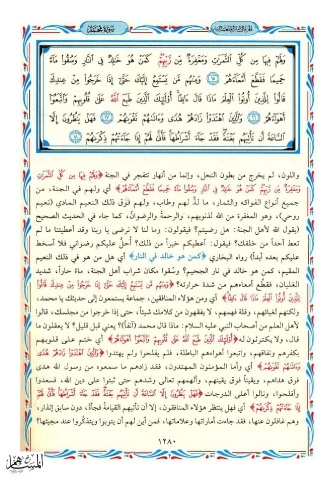 سورة محمد
وَلَهُمْ فِيهَا مِن كُلِّ الثَّمَرَاتِ وَمَغْفِرَةٌ مِّن رَّبِّهِمْ كَمَنْ هُوَ خَالِدٌ فِي النَّارِ وَسُقُوا مَاءً
حَمِيمًا فَقَطَّعَ أَمْعَاءَهُمْ ۝ وَمِنْهُم مَّن يَسْتَمِعُ إِلَيْكَ حَتَّىٰ إِذَا خَرَجُوا مِنْ عِندِكَ
قَالُوا لِلَّذِينَ أُوتُوا الْعِلْمَ مَاذَا قَالَ آنِفًا أُولَٰئِكَ الَّذِينَ طَبَعَ اللَّهُ عَلَىٰ قُلُوبِهِمْ وَاتَّبَعُوا
أَهْوَاءَهُمْ ۝ وَالَّذِينَ اهْتَدَوْا زَادَهُمْ هُدًى وَآتَاهُمْ تَقْوَاهُمْ ۝ فَهَلْ يَنظُرُونَ إِلَّا
السَّاعَةَ أَن تَأْتِيَهُم بَغْتَةً فَقَدْ جَاءَ أَشْرَاطُهَا فَأَنَّىٰ لَهُمْ إِذَا جَاءَتْهُمْ ذِكْرَاهُمْ ۝
واللون، لم يخرج من بطون النحل، وإنما من أنهار تتفجر في الجنة ﴿وَلَهُمْ فِيهَا مِن كُلِّ الثَّمَرَاتِ
وَمَغْفِرَةٌ مِّن رَّبِّهِمْ كَمَنْ هُوَ خَالِدٌ فِي النَّارِ وَسُقُوا مَاءً حَمِيمًا فَقَطَّعَ أَمْعَاءَهُمْ﴾ أي ولهم في الجنة، من
جميع أنواع الفواكه والثمار، ما لذّ لهم وطاب، ولهم فوق ذلك النعيم المادي (نعيم
روحي)، وهو المغفرة من الله لذنوبهم، والرحمةُ والرضوانُ، كما جاء في الحديث الصحيح
(يقول الله لأهل الجنة: هل رضيتم؟ فيقولون: وما لنا لا نرضى يا ربنا وقد أعطيتنا ما لم
تعط أحداً من خلقك؟ فيقول: أعطيكم خيراً من ذلك؟ أُحلُّ عليكم رضواني فلا أسخط
عليكم بعده أبداً) رواه البخاري ﴿كمن هو خالد في النار﴾ أي هل من هو في ذلك النعيم
المقيم، كمن هو خالد في نار الجحيم؟ وسُقوا مكان شراب أهل الجنة، ماءً حاراً، شديد
الغليان، فقطّع أمعاءهم من شدة حرارته؟ ﴿وَمِنْهُم مَّن يَسْتَمِعُ إِلَيْكَ حَتَّىٰ إِذَا خَرَجُوا مِنْ عِندِكَ قَالُوا
لِلَّذِينَ أُوتُوا الْعِلْمَ مَاذَا قَالَ آنِفًا﴾ أي ومن هؤلاء المنافقين، جماعة يستمعون إلى حديثك يا محمد،
ولكنهم لغبائهم، وقلة فهمهم، لا يفقهون من كلامك شيئاً، حتى إذا خرجوا من مجلسك، قالوا
لأهل العلم من أصحاب النبي عليه السلام: ماذا قال محمد (آنفاً)؟ يعني قبل قليل؟ لا يعقلون ما
قال، ولا يكترثون له ﴿أُولَٰئِكَ الَّذِينَ طَبَعَ اللَّهُ عَلَىٰ قُلُوبِهِمْ وَاتَّبَعُوا أَهْوَاءَهُمْ﴾ أي ختم على قلوبهم
بكفرهم ونفاقهم، واتبعوا أهواءهم الباطلة، فلم يفقهوا ولم يهتدوا ﴿وَالَّذِينَ اهْتَدَوْا زَادَهُمْ هُدًى
وَآتَاهُمْ تَقْوَاهُمْ﴾ أي وأما المؤمنون المهتدون، فقد زادهم ما سمعوه من رسول الله هدى
فوق هداهم، ويقيناً فوق يقينهم، وألهمهم تعالى رشدهم حتى ثبتوا على دين الله، فسعدوا
وأفلحوا، ونالوا أعلى الدرجات ﴿فَهَلْ يَنظُرُونَ إِلَّا السَّاعَةَ أَن تَأْتِيَهُم بَغْتَةً فَقَدْ جَاءَ أَشْرَاطُهَا فَأَنَّىٰ لَهُمْ
إِذَا جَاءَتْهُمْ ذِكْرَاهُمْ﴾ أي فهل ينتظر هؤلاء المنافقون، إلا أن تأتيهم القيامةُ فجأةً، دون سابق إنذار،
وهم غافلون عنها، فقد جاءت أماراتها وعلاماتها، فمن أين لهم أن يتوبوا ويتذكّروا عند مجيئها؟
١٢٨٠